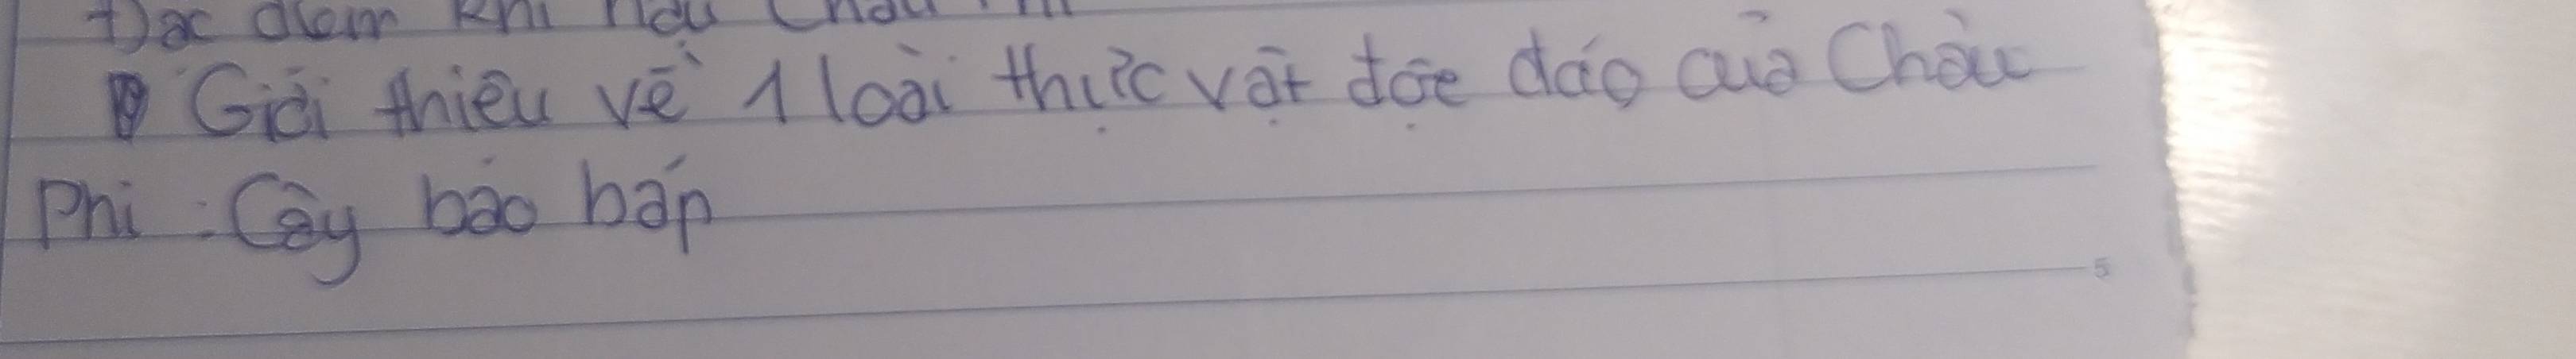 Đặc điểm khí hậu Châu Phi
Giới thiệu về 1 loài thực vật độc đáo của Châu
Phi : Cây bao báp
5